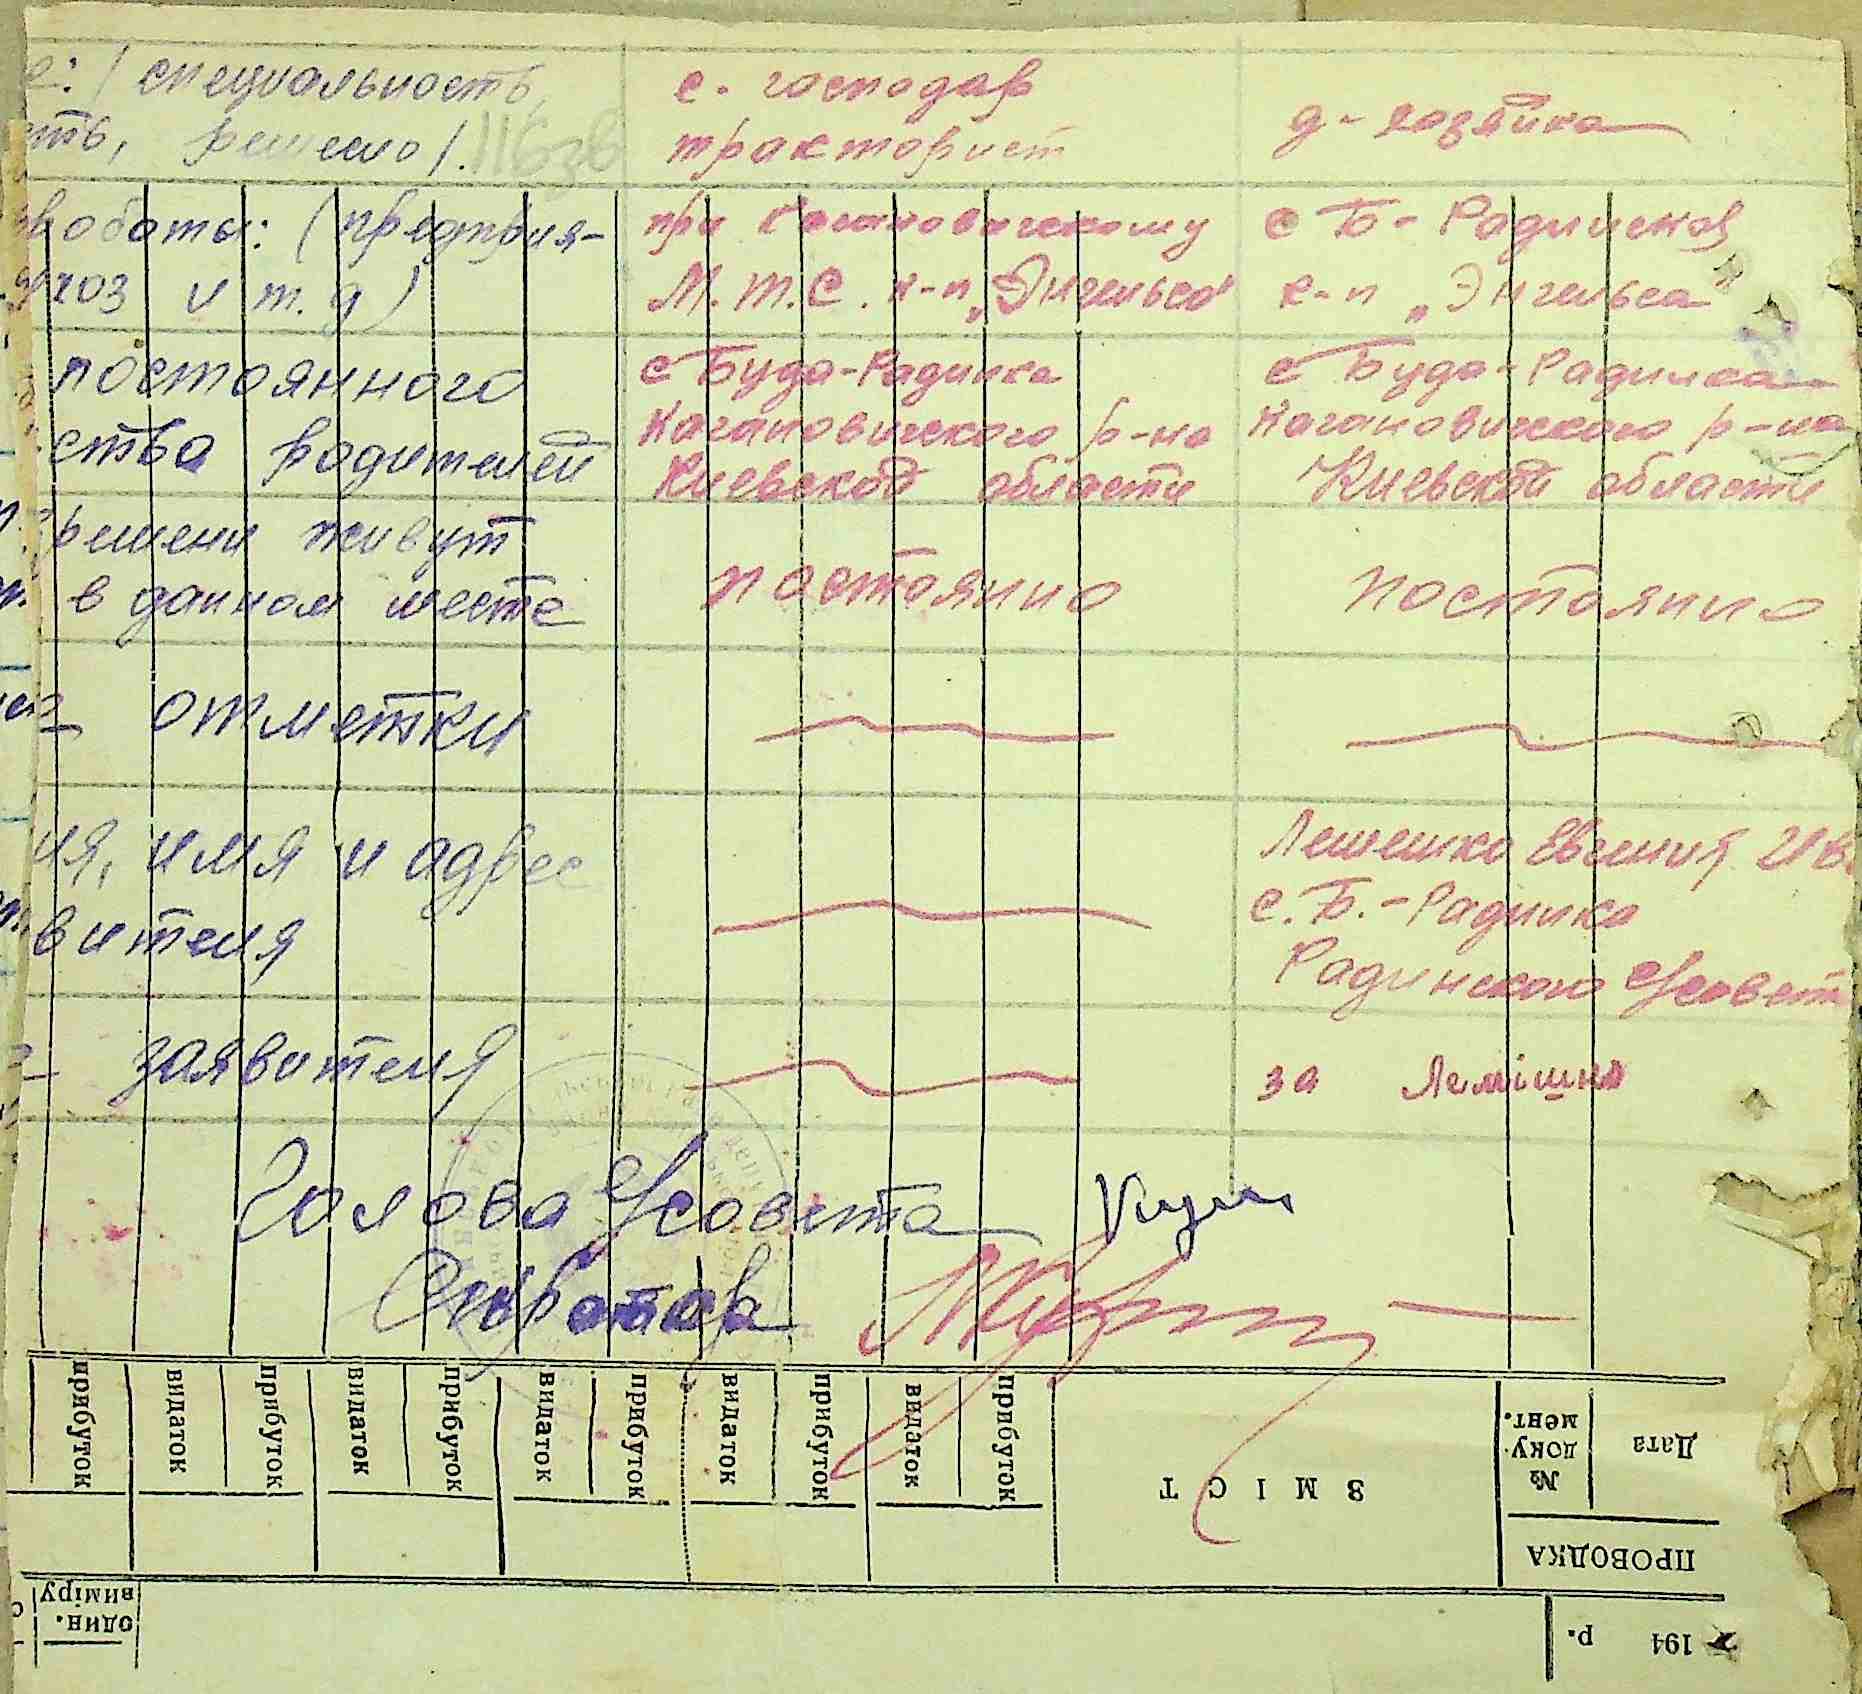 е: / специальность, с. господар
ть, ремесло /. 116зв тракторист д-хозяйка
работы: (предприя- при Кагановичскому с Б-Радинской
хоз и т.д) М.Т.С. к-п „Энгельса" к-п „Энгельса"
постоянного с Буда-Радинка с Буда-Радинка
ства родителей Кагановичского р-на Кагановичского р-на
Киевской области Киевской области
времени живут
в данном месте постоянно постоянно
отметки
ия, имя и адрес Лемешко Евгения Ив
вителя с.Б.-Радинка
Радинского с/совет
заявителя за Лемішко
Голова с/совета
Секретарь
прибуток видаток прибуток видаток прибуток видаток прибуток видаток прибуток видаток прибуток
ЗМІСТ
№ доку-
мент.
Дата
ПРОВОДКА
один.
виміру
194 р.